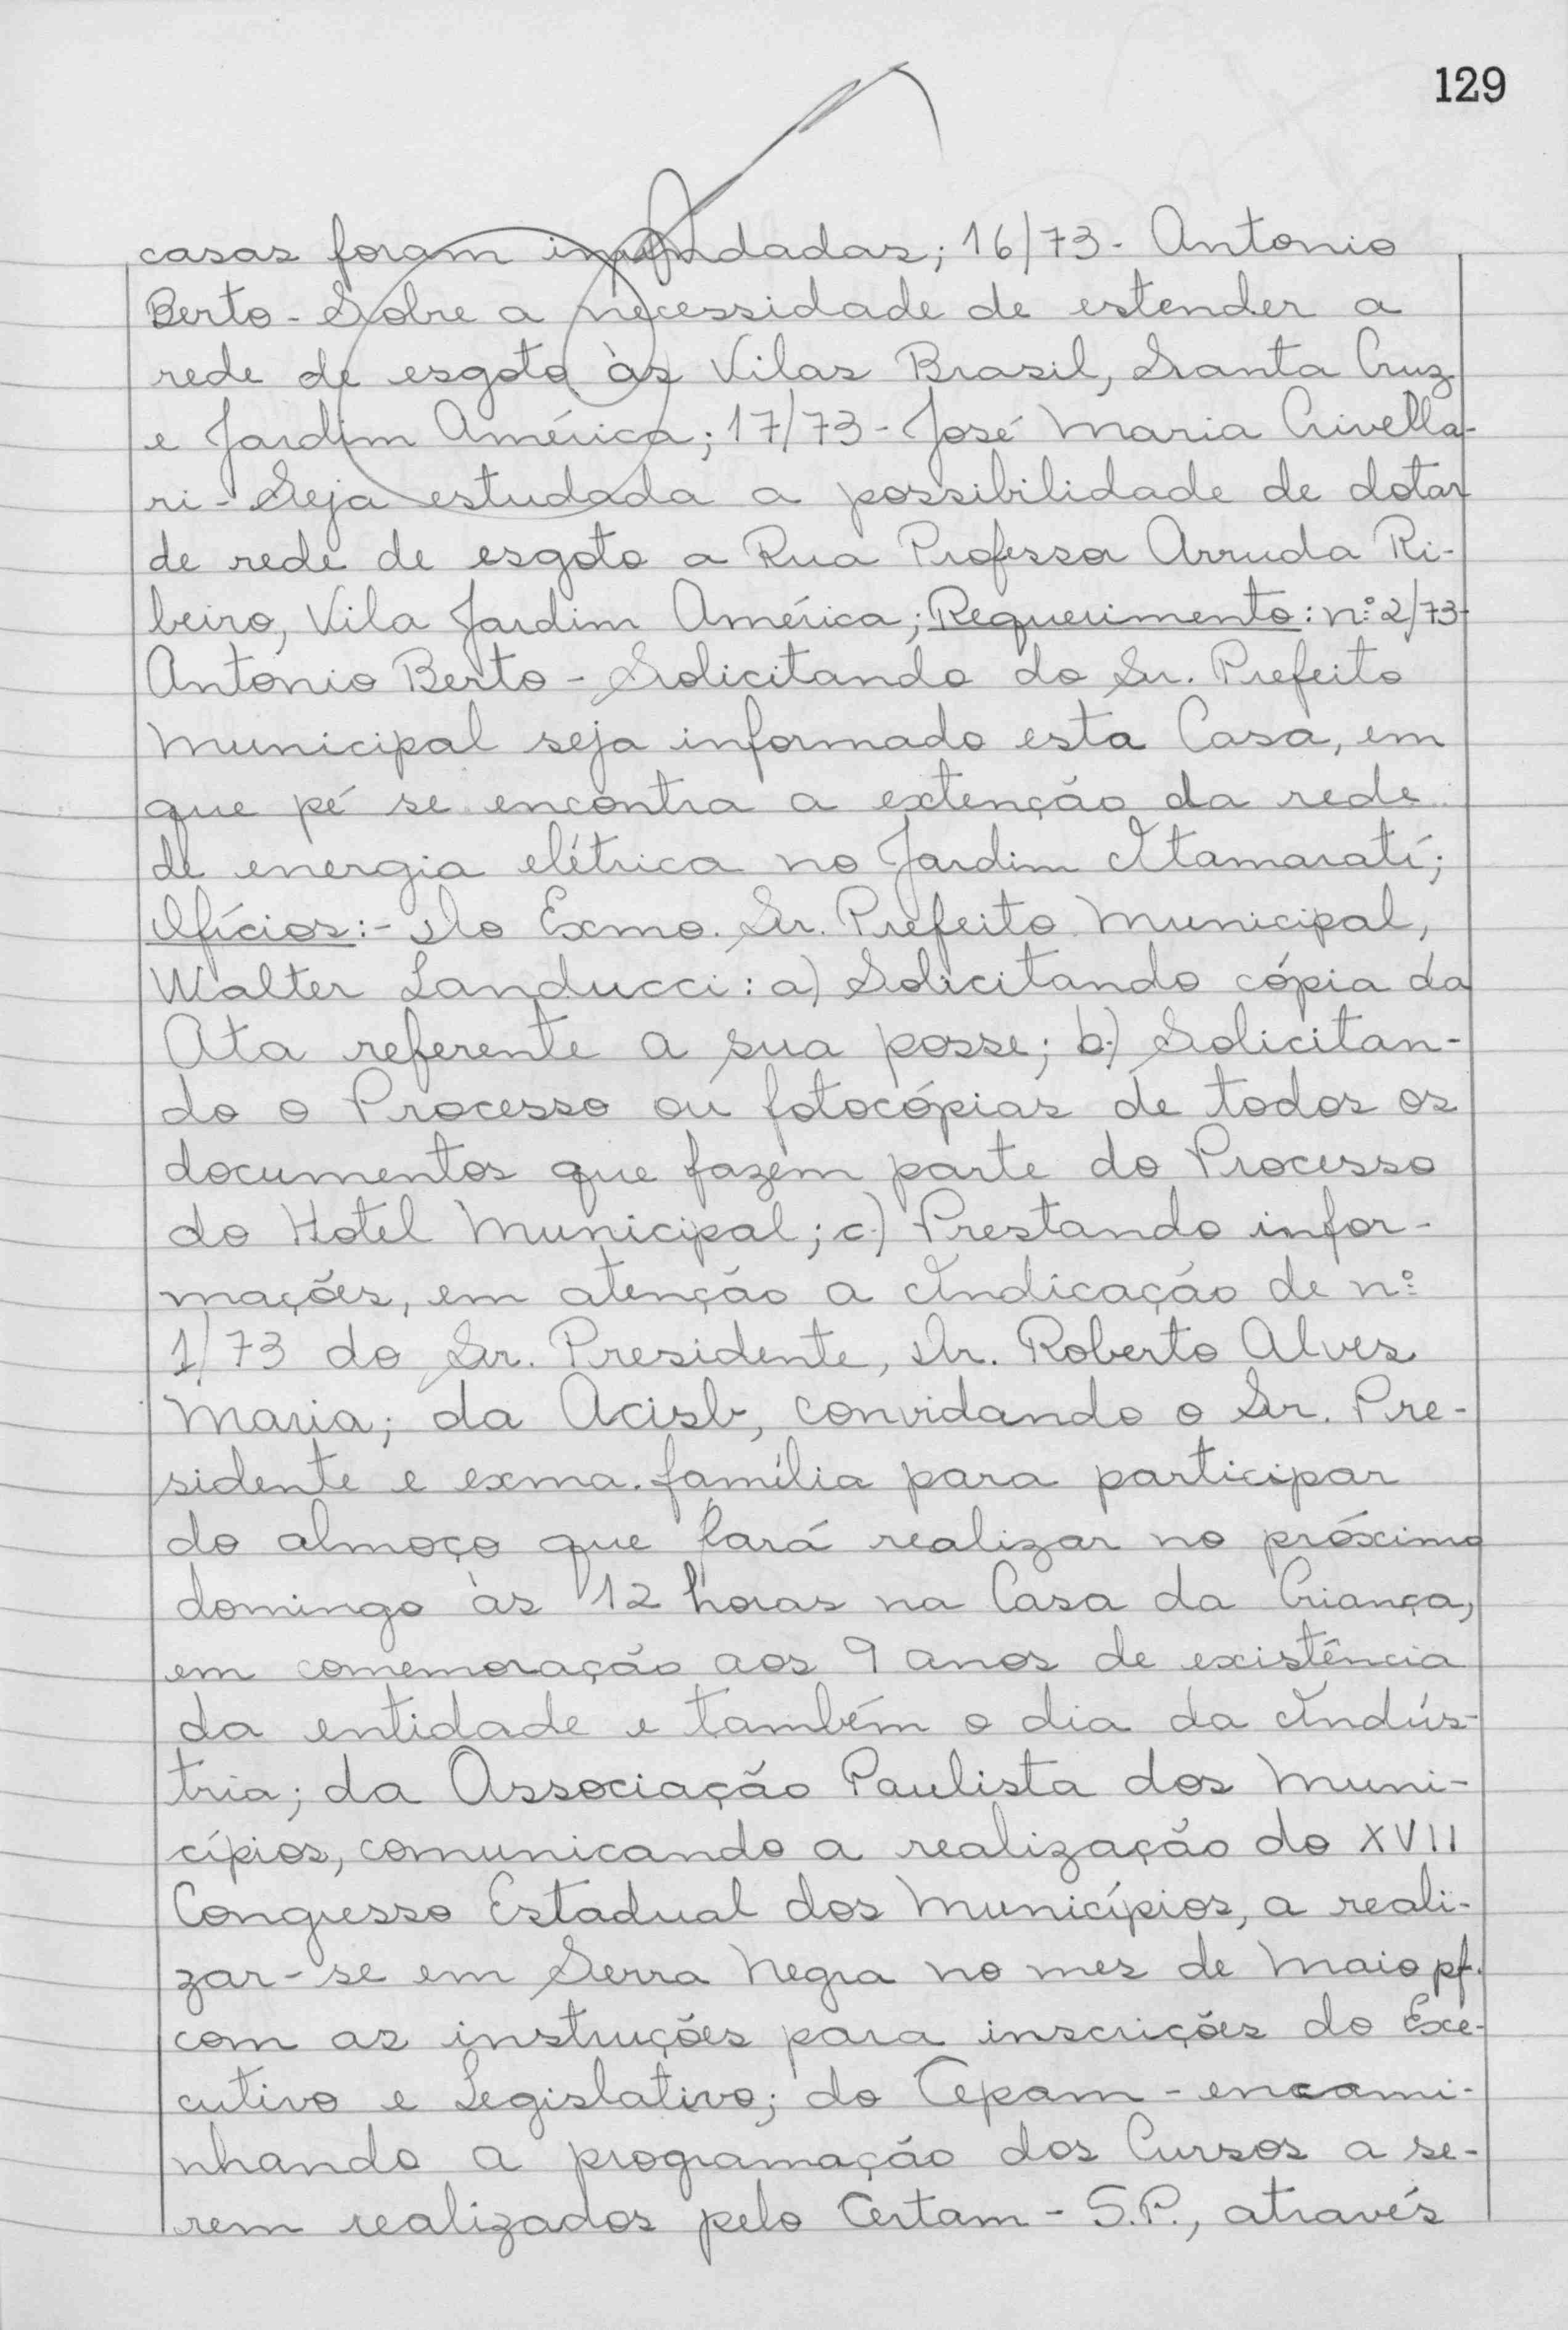 129
casas foram inundadas; 16/73 - Antonio
Berto - Sobre a necessidade de estender a
rede de esgoto às Vilas Brasil, Santa Cruz
e Jardim América; 17/73 - José Maria Crivella-
ri - Seja estudada a possibilidade de dotar
de rede de esgoto a Rua Professor Arruda Ri-
beiro, Vila Jardim América; Requerimento: nº 2/73-
Antonio Berto - Solicitando do Sr. Prefeito
Municipal seja informado esta Casa, em
que pé se encontra a extenção da rede
de energia elétrica no Jardim Itamaratí;
Ofícios:- Do Exmo. Sr. Prefeito Municipal,
Walter Landucci: a) Solicitando cópia da
Ata referente a sua posse; b.) Solicitan-
do o Processo ou fotocópias de todos os
documentos que fazem parte do Processo
do Hotel Municipal; c.) Prestando infor-
mações, em atenção a Indicação de nº
1/73 do Sr. Presidente, Dr. Roberto Alves
Maria; da Acislb, convidando o Sr. Pre-
sidente e exma. família para participar
do almoço que fará realizar no próximo
domingo às 12 horas na Casa da Criança,
em comemoração aos 9 anos de existência
da entidade e também o dia da Indús-
tria; da Associação Paulista dos Muni-
cípios, comunicando a realização do XVII
Congresso Estadual dos Municípios, a reali-
zar-se em Serra Negra no mes de Maio pf.
com as instruções para inscrições do Exe-
cutivo e Legislativo; do Cepam - encami-
nhando a programação dos Cursos a se-
rem realizados pelo Certam - S.P., através